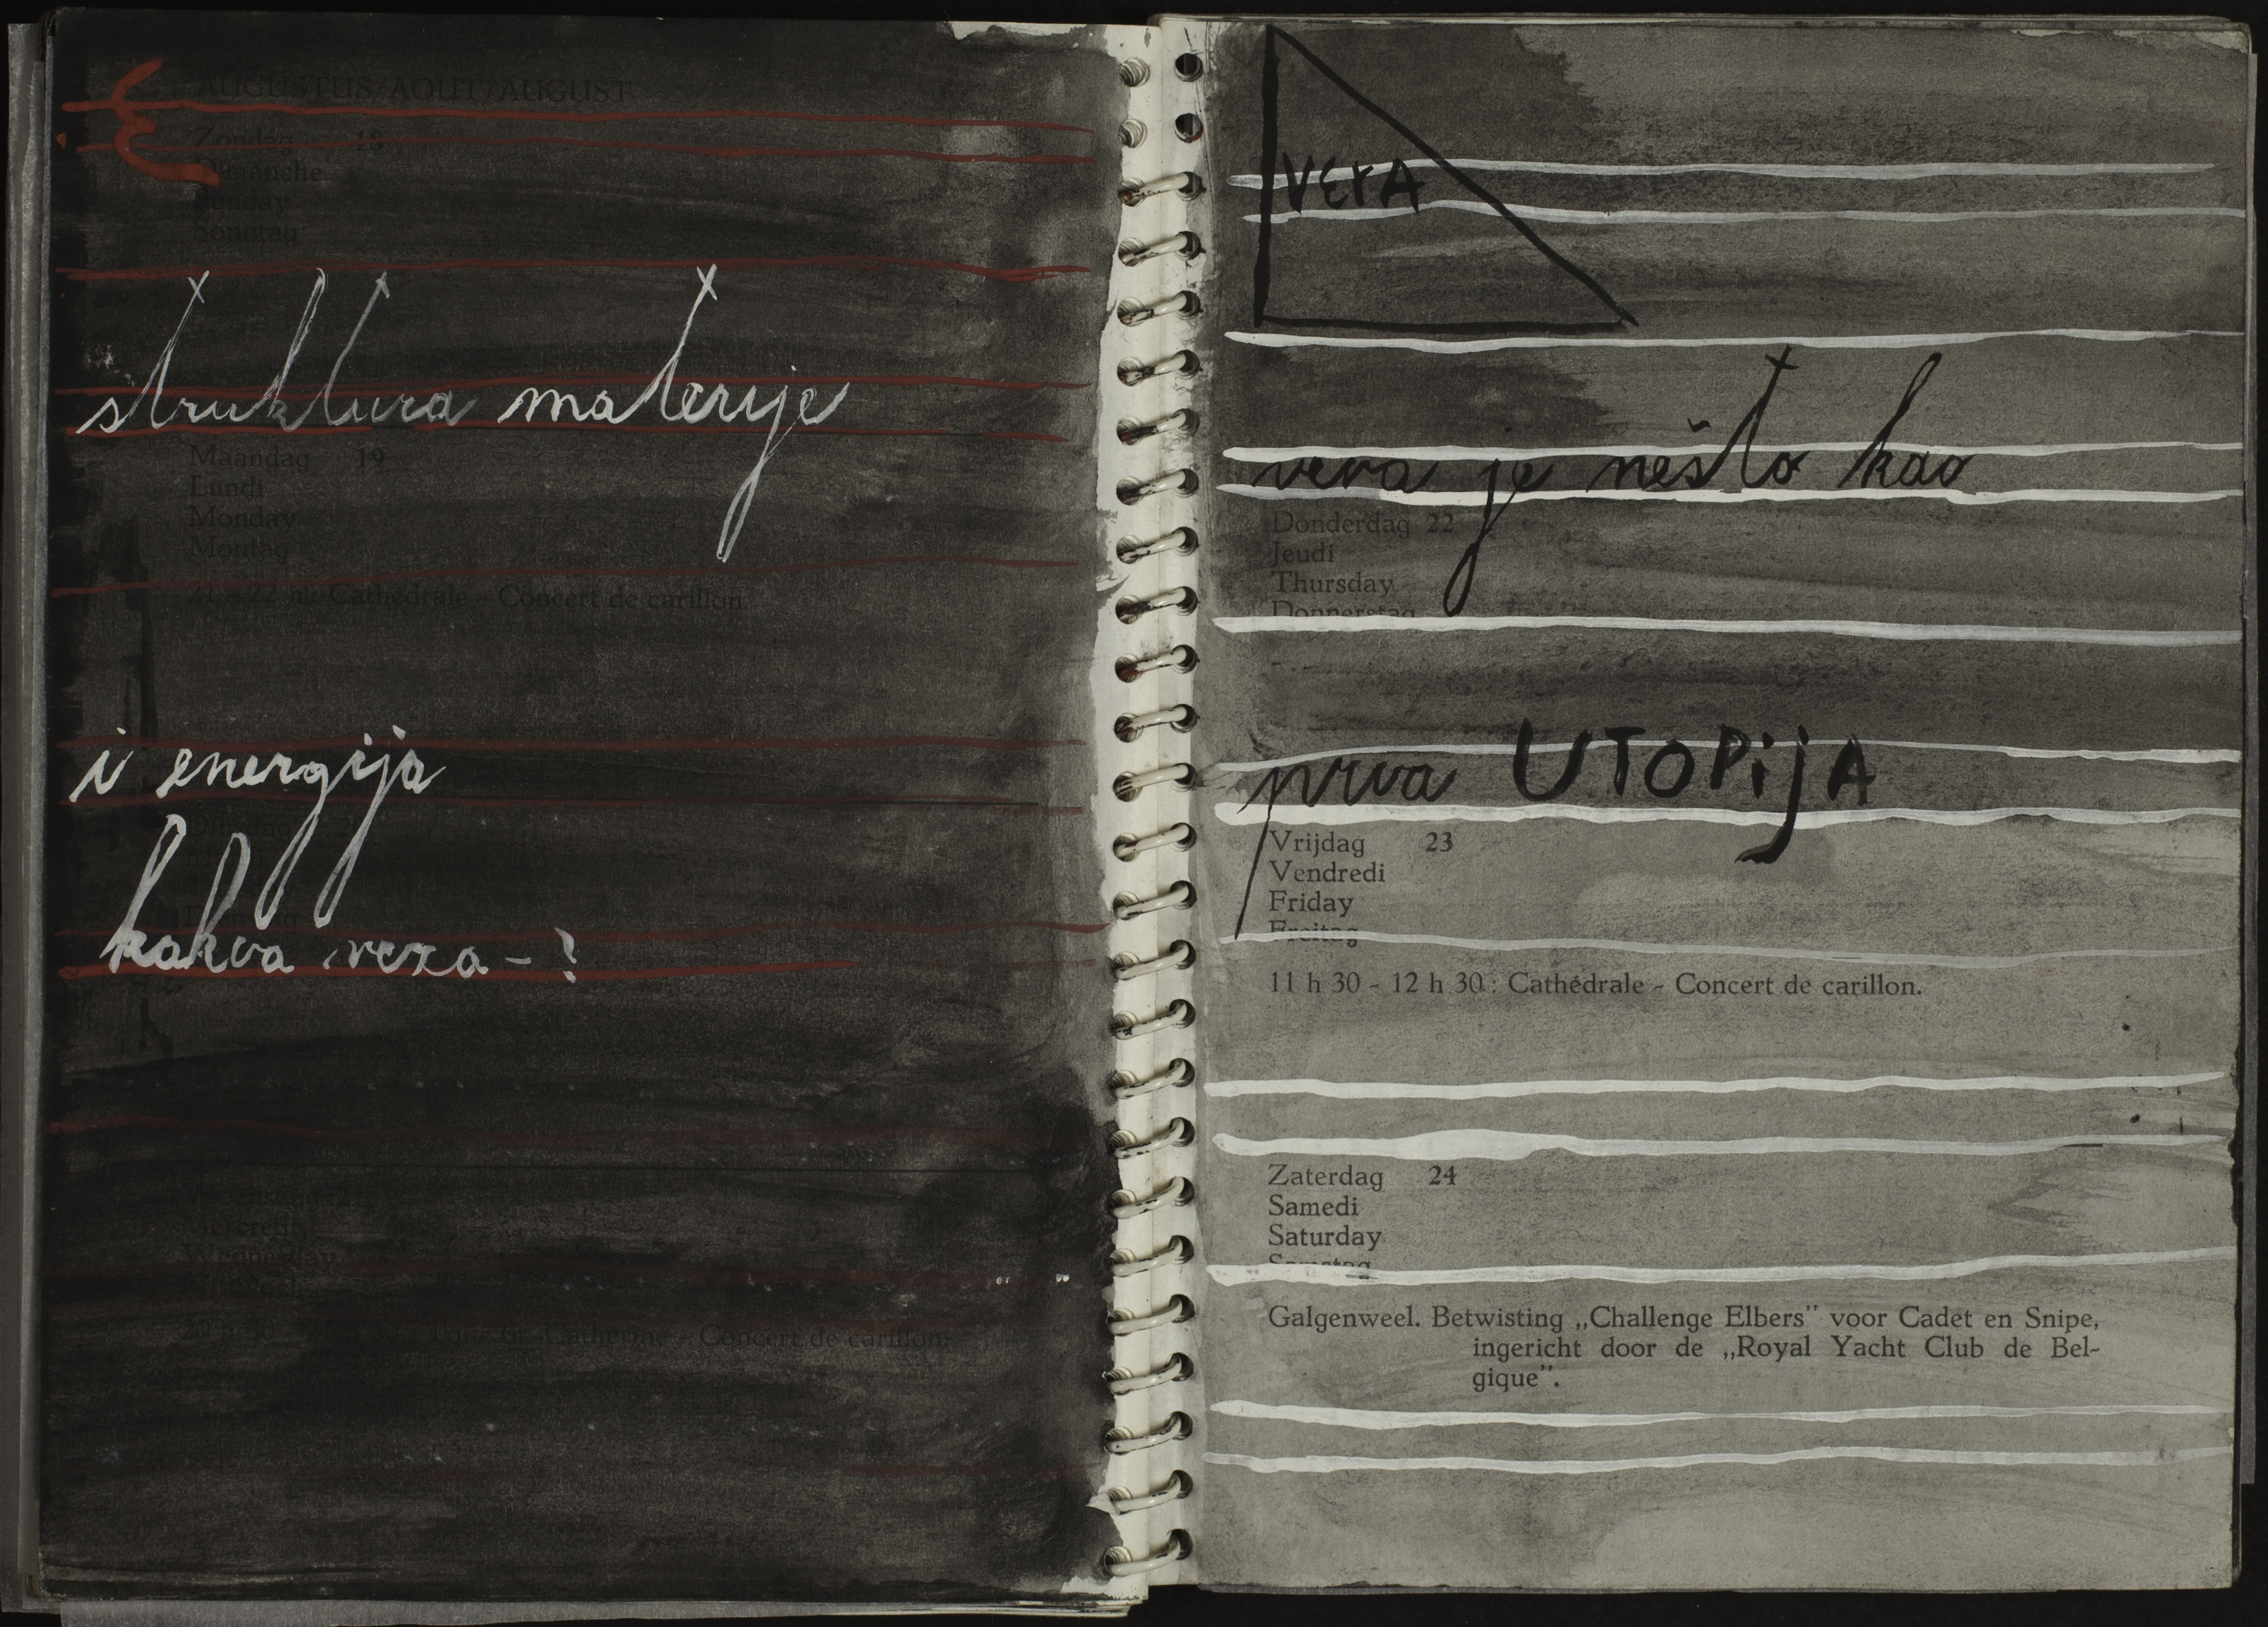 AUGUSTUS/AOUT/AUGUST
Zondag 18
Dimanche
Sunday
Sonntag
struktura materije
Maandag 19
Lundi
Monday
Montag
21 - 22 h.: Cathédrale - Concert de carillon.
i energija
Dinsdag
kakva veza - ?
Mercredi
Wednesday
Cathédrale - Concert de carillon.
VErA
vera je nešto kao
Donderdag 22
Jeudi
Thursday
Donnerstag
prva UTOPijA
Vrijdag 23
Vendredi
Friday
Freitag
11 h 30 - 12 h 30 : Cathédrale - Concert de carillon.
Zaterdag 24
Samedi
Saturday
Samstag
Galgenweel. Betwisting „Challenge Elbers" voor Cadet en Snipe,
ingericht door de „Royal Yacht Club de Bel-
gique".